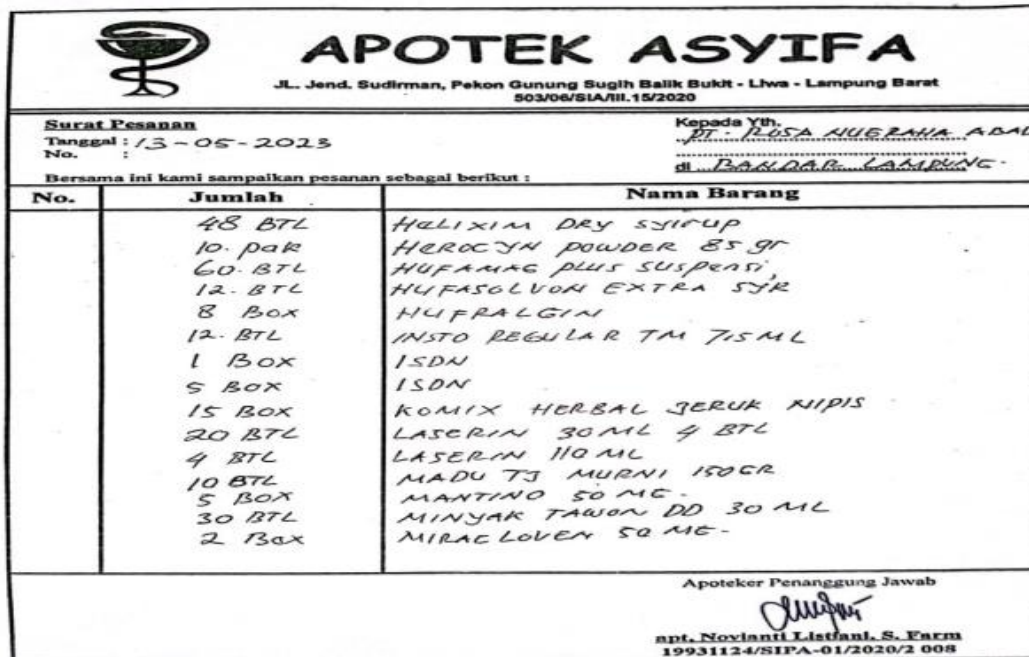 APOTEK ASYIFA
JL. Jend. Sudirman, Pekon Gunung Sugih Balik Bukit - Liwa - Lampung Barat
503/06/SIA/III.15/2020
Surat Pesanan
Tanggal : 13 - 05 - 2023
No. :
Kepada Yth.
PT. ROSA NUGRAHA ABAD
di BANDAR LAMPUNG.
Bersama ini kami sampaikan pesanan sebagai berikut :
No. Jumlah Nama Barang
48 BTL HELIXIM DRY SYIRUP
10. pak HEROCYN POWDER 85 gr
60. BTL HUFAMAG PLUS SUSPENSI,
12. BTL HUFASOLVON EXTRA SYR
8 Box HUFRALGIN
12. BTL INSTO REGULAR TM 7,5 ML
1 Box ISDN
5 Box ISDN
15 Box KOMIX HERBAL JERUK NIPIS
20 BTL LASERIN 30 ML 4 BTL
4 BTL LASERIN 110 ML
10 BTL MADU TJ MURNI 150 GR
5 BOX MANTINO 50 MG.
30 BTL MINYAK TAWON DD 30 ML
2 Box 50 MG.
Apoteker Penanggung Jawab
apt. Novianti Listiani, S. Farm
19931124/SIPA-01/2020/2 008